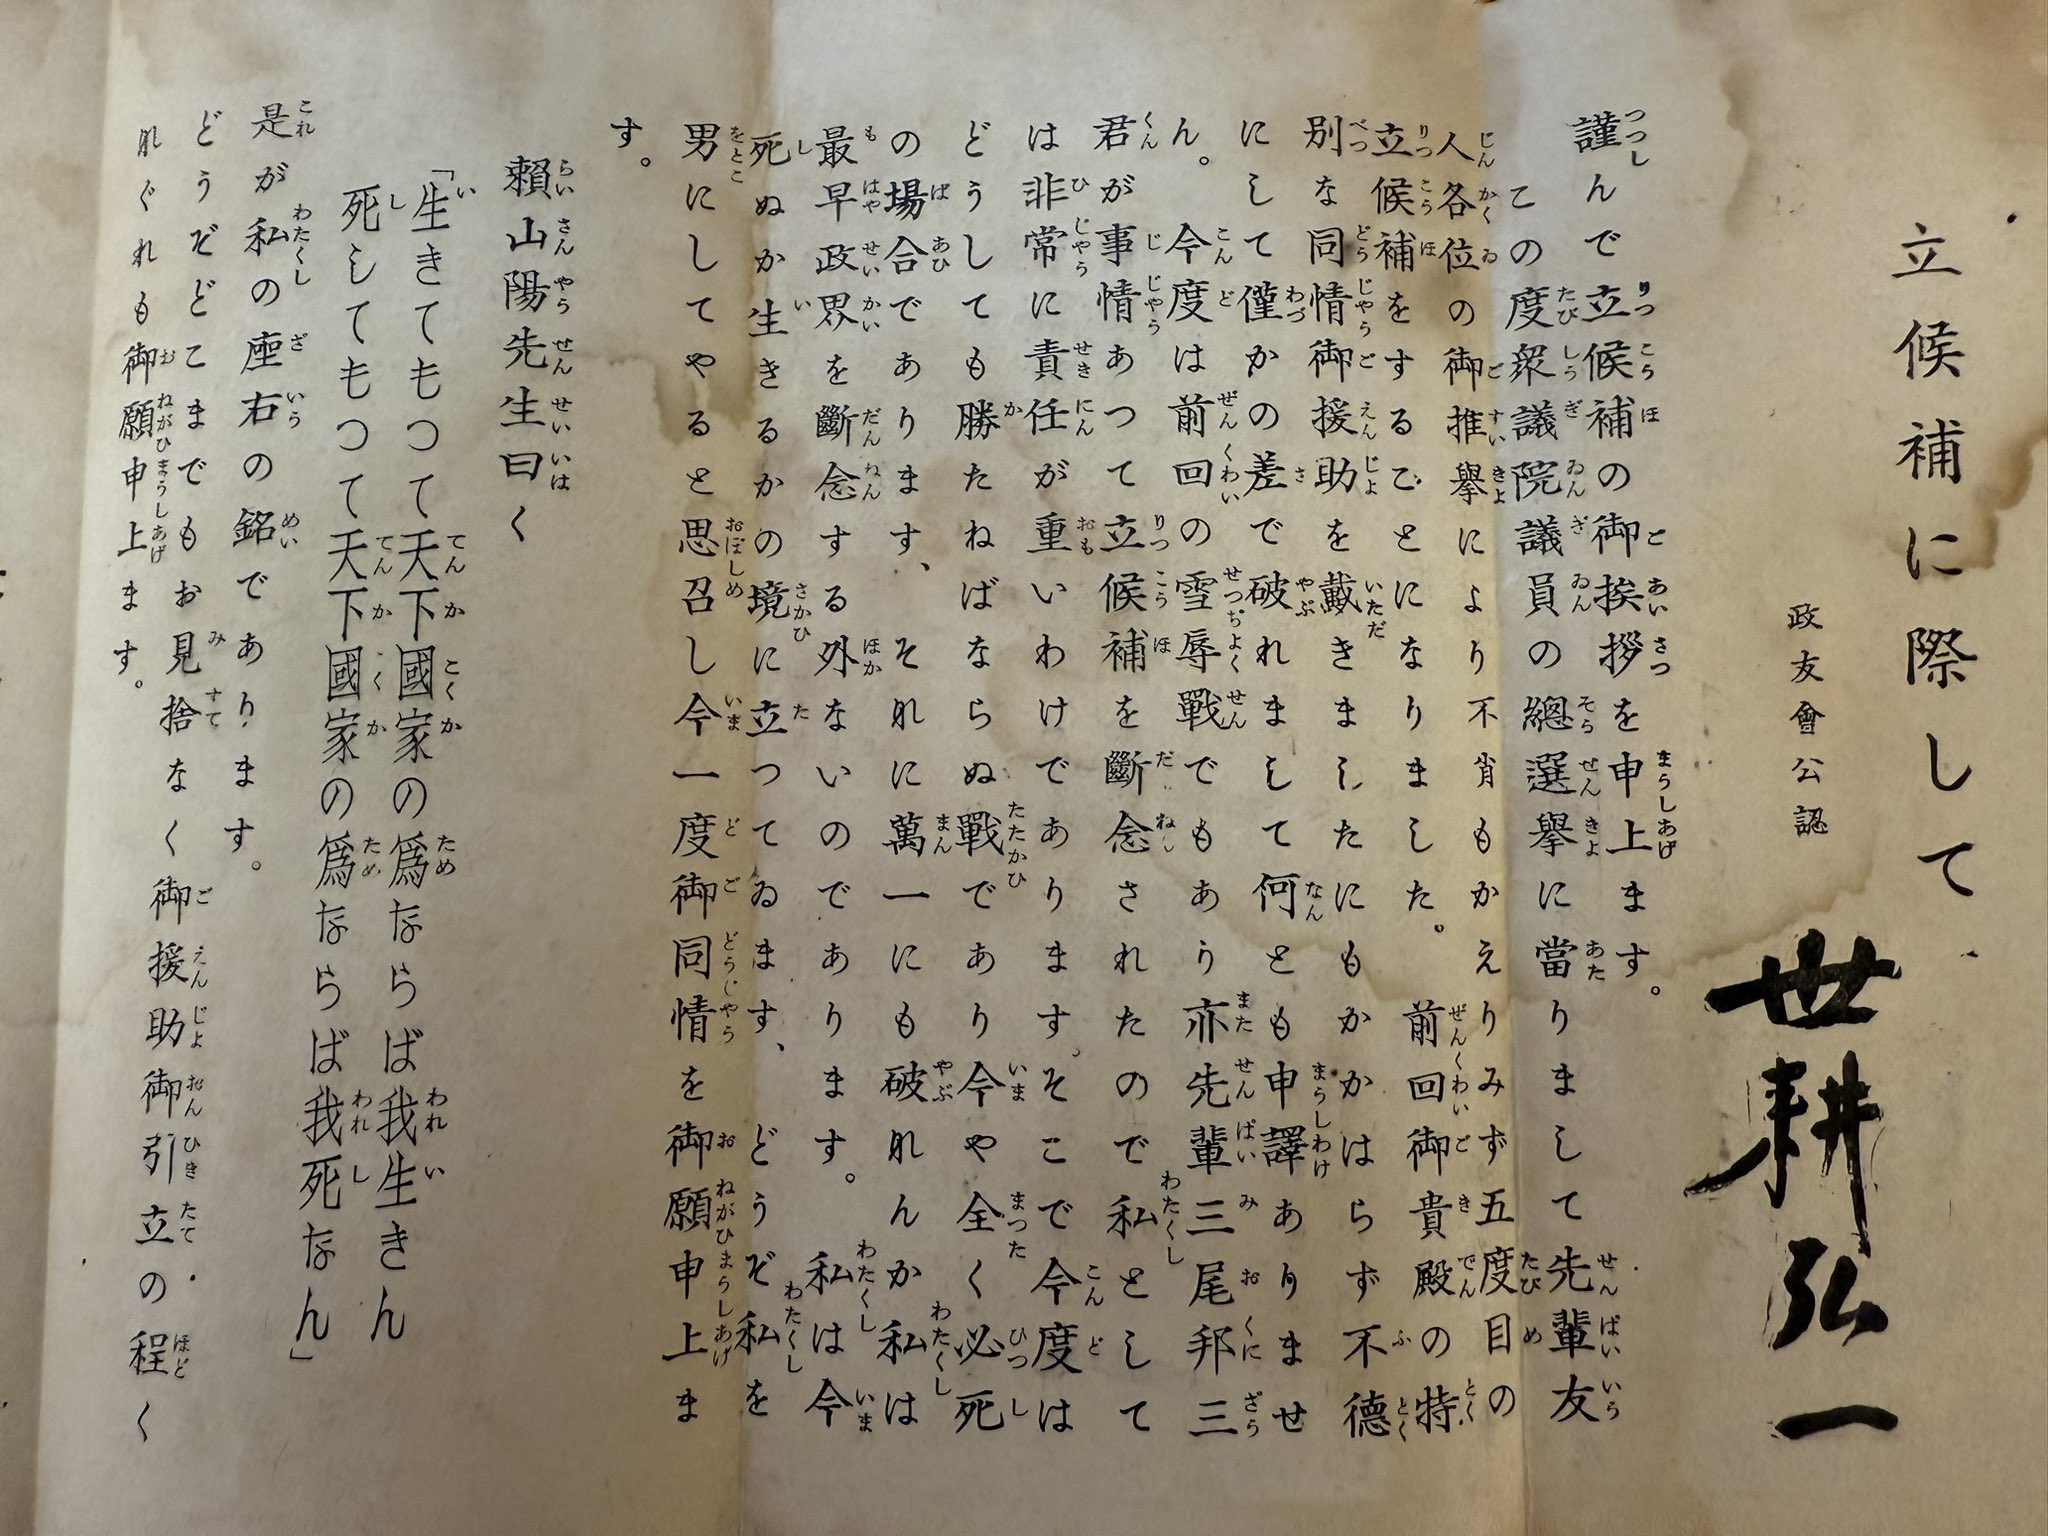 立候補に際して
政友會公認
世耕弘一
謹んで立候補の御挨拶を申上ます。
この度衆議院議員の總選擧に當りまして先輩友
人各位の御推擧により不肖もかえりみず五度目の
立候補をすることになりました。 前回御貴殿の特
別な同情御援助を戴きましたにもかかはらず不德
にして僅かの差で破れまして何とも申譯ありませ
ん。 今度は前回の雪辱戰でもあり亦先輩三尾邦三
君が事情あつて立候補を斷念されたので私として
は非常に責任が重いわけであります。そこで今度は
どうしても勝たねばならぬ戰であり今や全く必死
の場合であります、それに萬一にも破れんか私は
最早政界を斷念する外ないのであります。 私は今
死ぬか生きるかの境に立つてゐます、どうぞ私を
男にしてやると思召し今一度御同情を御願申上ま
す。
賴山陽先生曰く
「生きてもつて天下國家の爲ならば我生きん
死してもつて天下國家の爲ならば我死なん」
是が私の座右の銘であります。
どうぞどこまでもお見捨なく御援助御引立の程く
れぐれも御願申上ます。